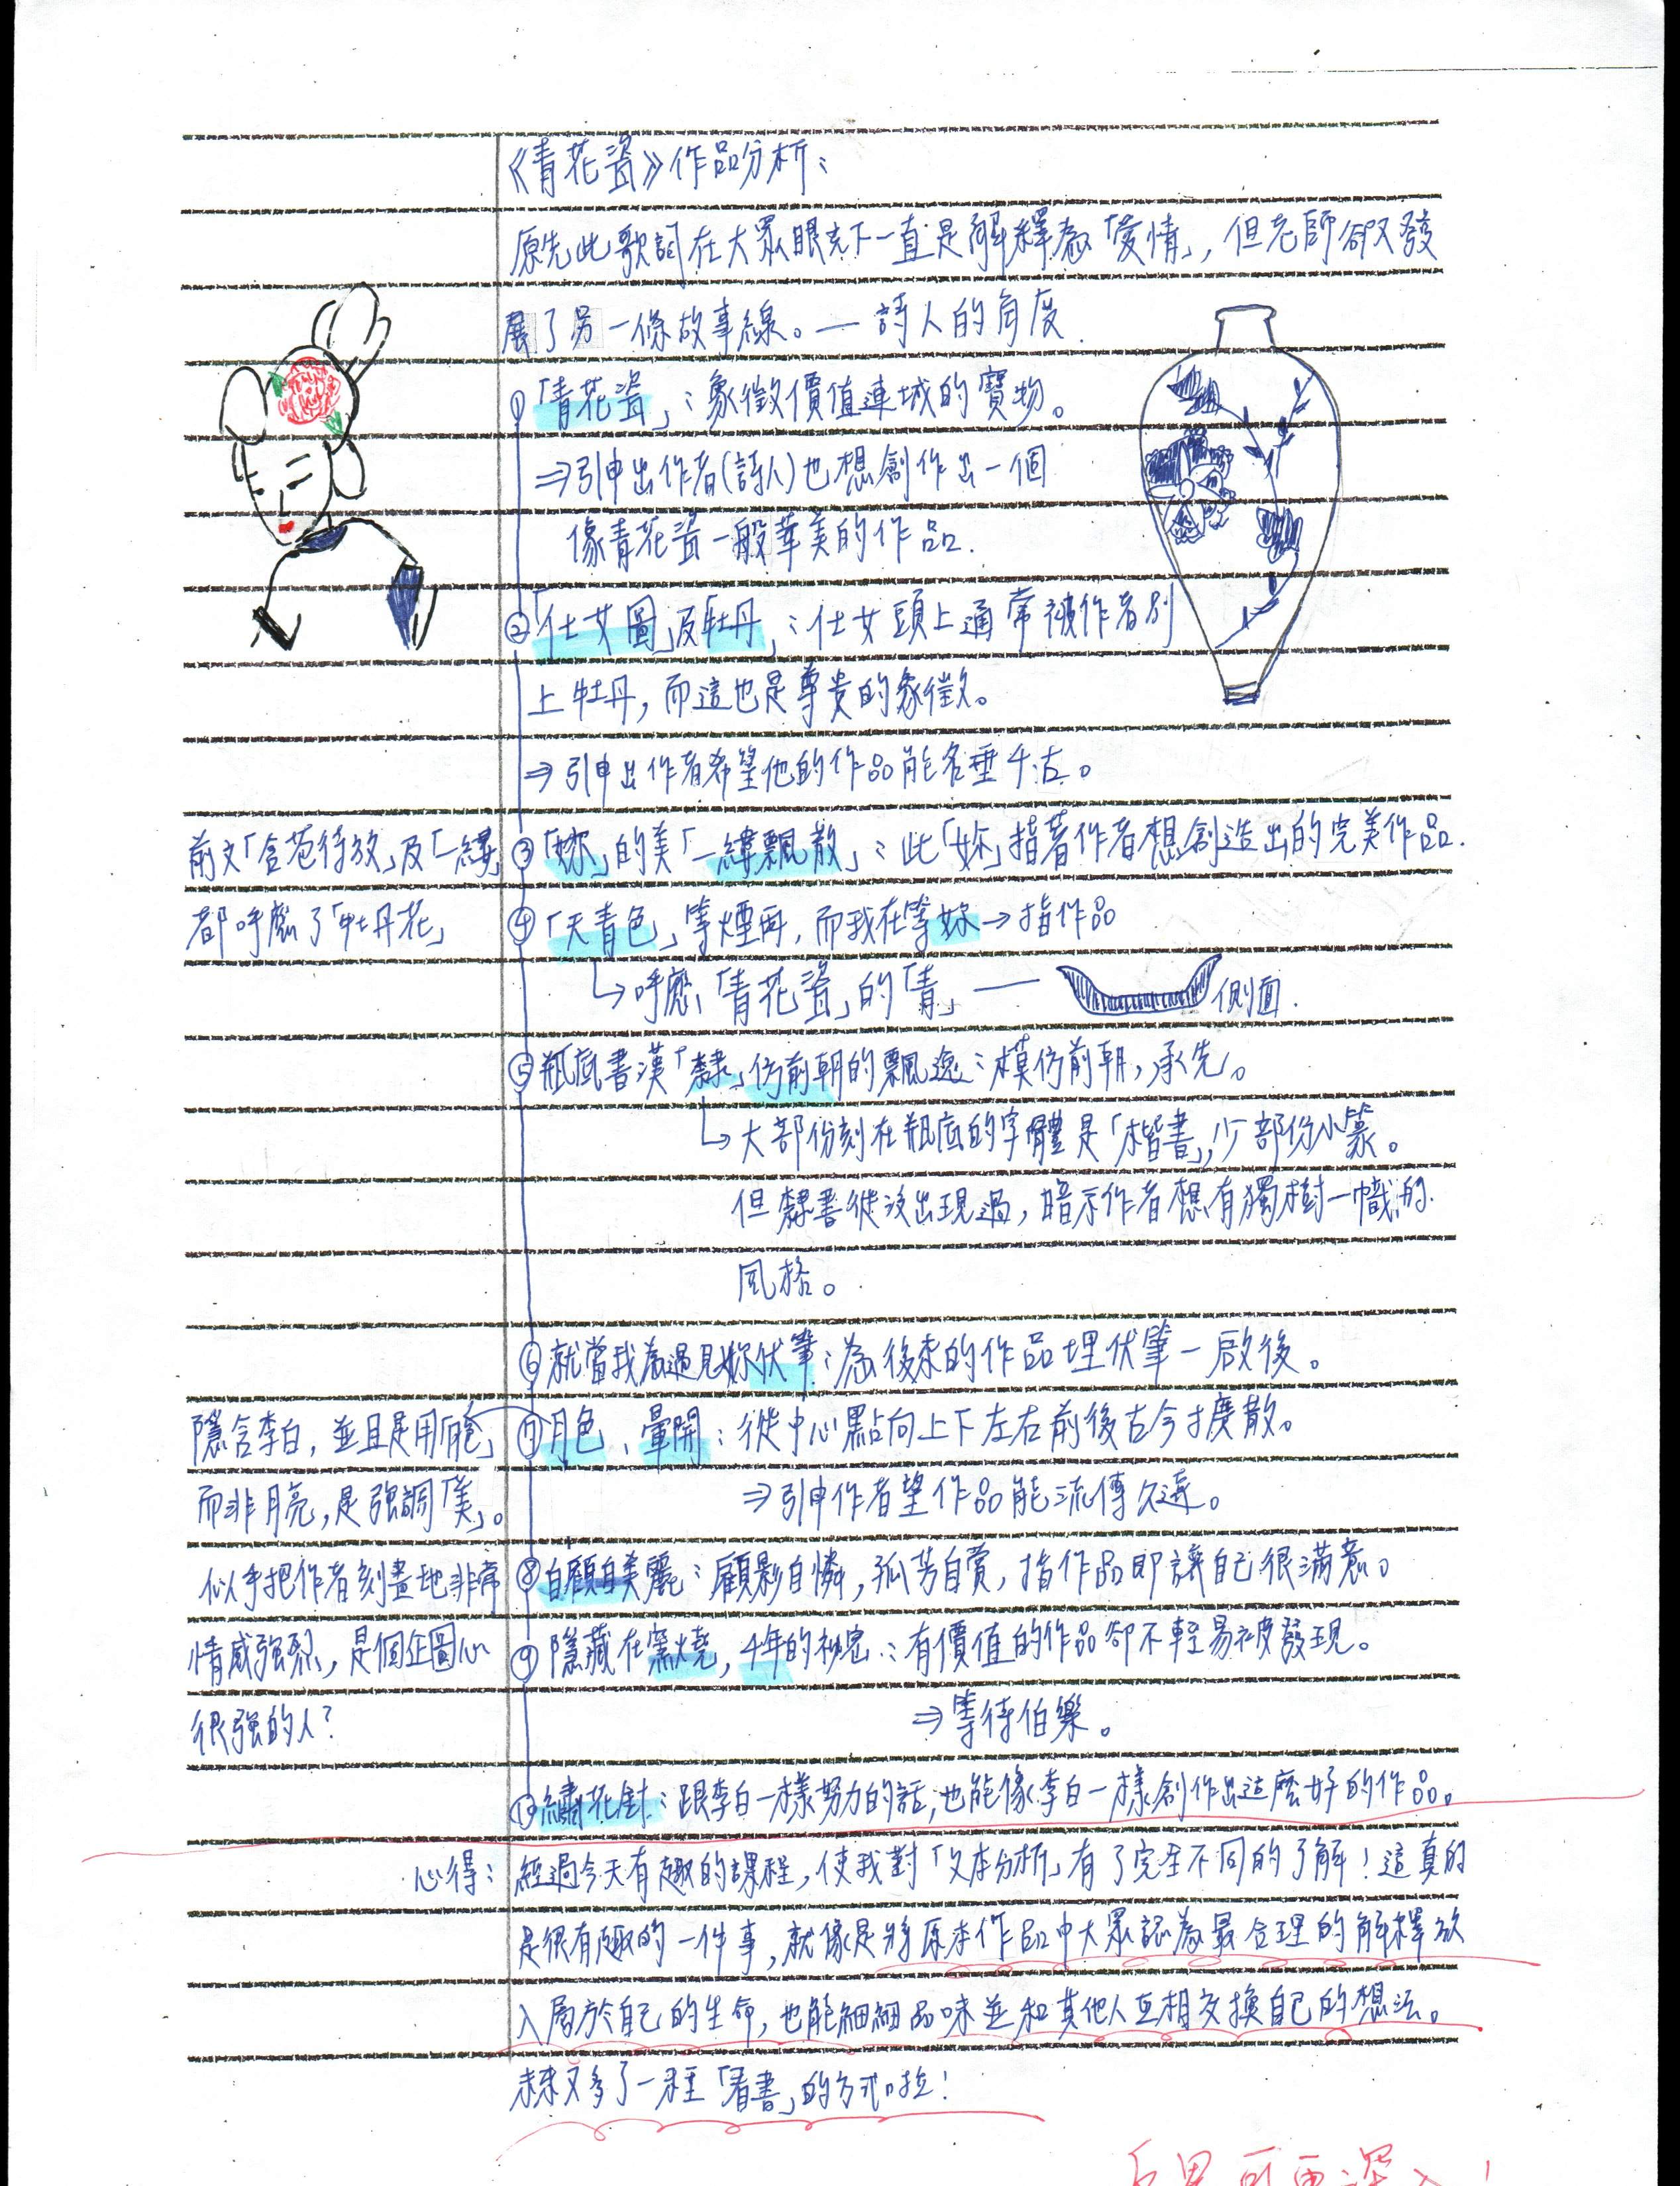 《青花瓷》作品分析：
原先此歌詞在大眾眼光下一直是解釋為「愛情」，但老師卻又發
展了另一條故事線。— 詩人的角度.
①「青花瓷」：象徵價值連城的寶物。
⇒引申出作者(詩人)也想創作出一個
像青花瓷一般華美的作品.
②「仕女圖」及「牡丹」：仕女頭上通常被作者別
上牡丹，而這也是尊貴的象徵。
⇒引申出作者希望他的作品能名垂千古。
前文「含苞待放」及「一縷」
都呼應了「牡丹花」
③「妳」的美「一縷飄散」：此「妳」指著作者想創造出的完美作品.
④「天青色」等煙雨，而我在等妳→指作品
↳呼應「青花瓷」的「青」— 側面.
⑤瓶底書漢「隸」仿前朝的飄逸：模仿前朝，承先。
↳大部份刻在瓶底的字體是「楷書」，少部份小篆。
但隸書從沒出現過，暗示作者想有獨樹一幟的
風格。
⑥就當我為遇見妳伏筆：為後來的作品埋伏筆—啟後。
隱含李白，並且是用「月色」
而非月亮，是強調「美」。
⑦月色、暈開：從中心點向上下左右前後古今擴散。
⇒引申作者望作品能流傳久遠。
似乎把作者刻畫地非常
情感強烈，是個企圖心
很強的人？
⑧自顧自美麗：顧影自憐，孤芳自賞，指作品即讓自己很滿意。
⑨隱藏在窯燒，千年的秘密：有價值的作品卻不輕易被發現。
⇒等待伯樂。
⑩繡花針：跟李白一樣努力的話，也能像李白一樣創作出這麼好的作品。
心得：經過今天有趣的課程，使我對「文本分析」有了完全不同的了解！這真的
是很有趣的一件事，就像是將原本作品中大眾認為最合理的解釋放
入屬於自己的生命，也能細細品味並和其他人互相交換自己的想法。
未來又多了一種「看書」的方式啦！
可再深入！